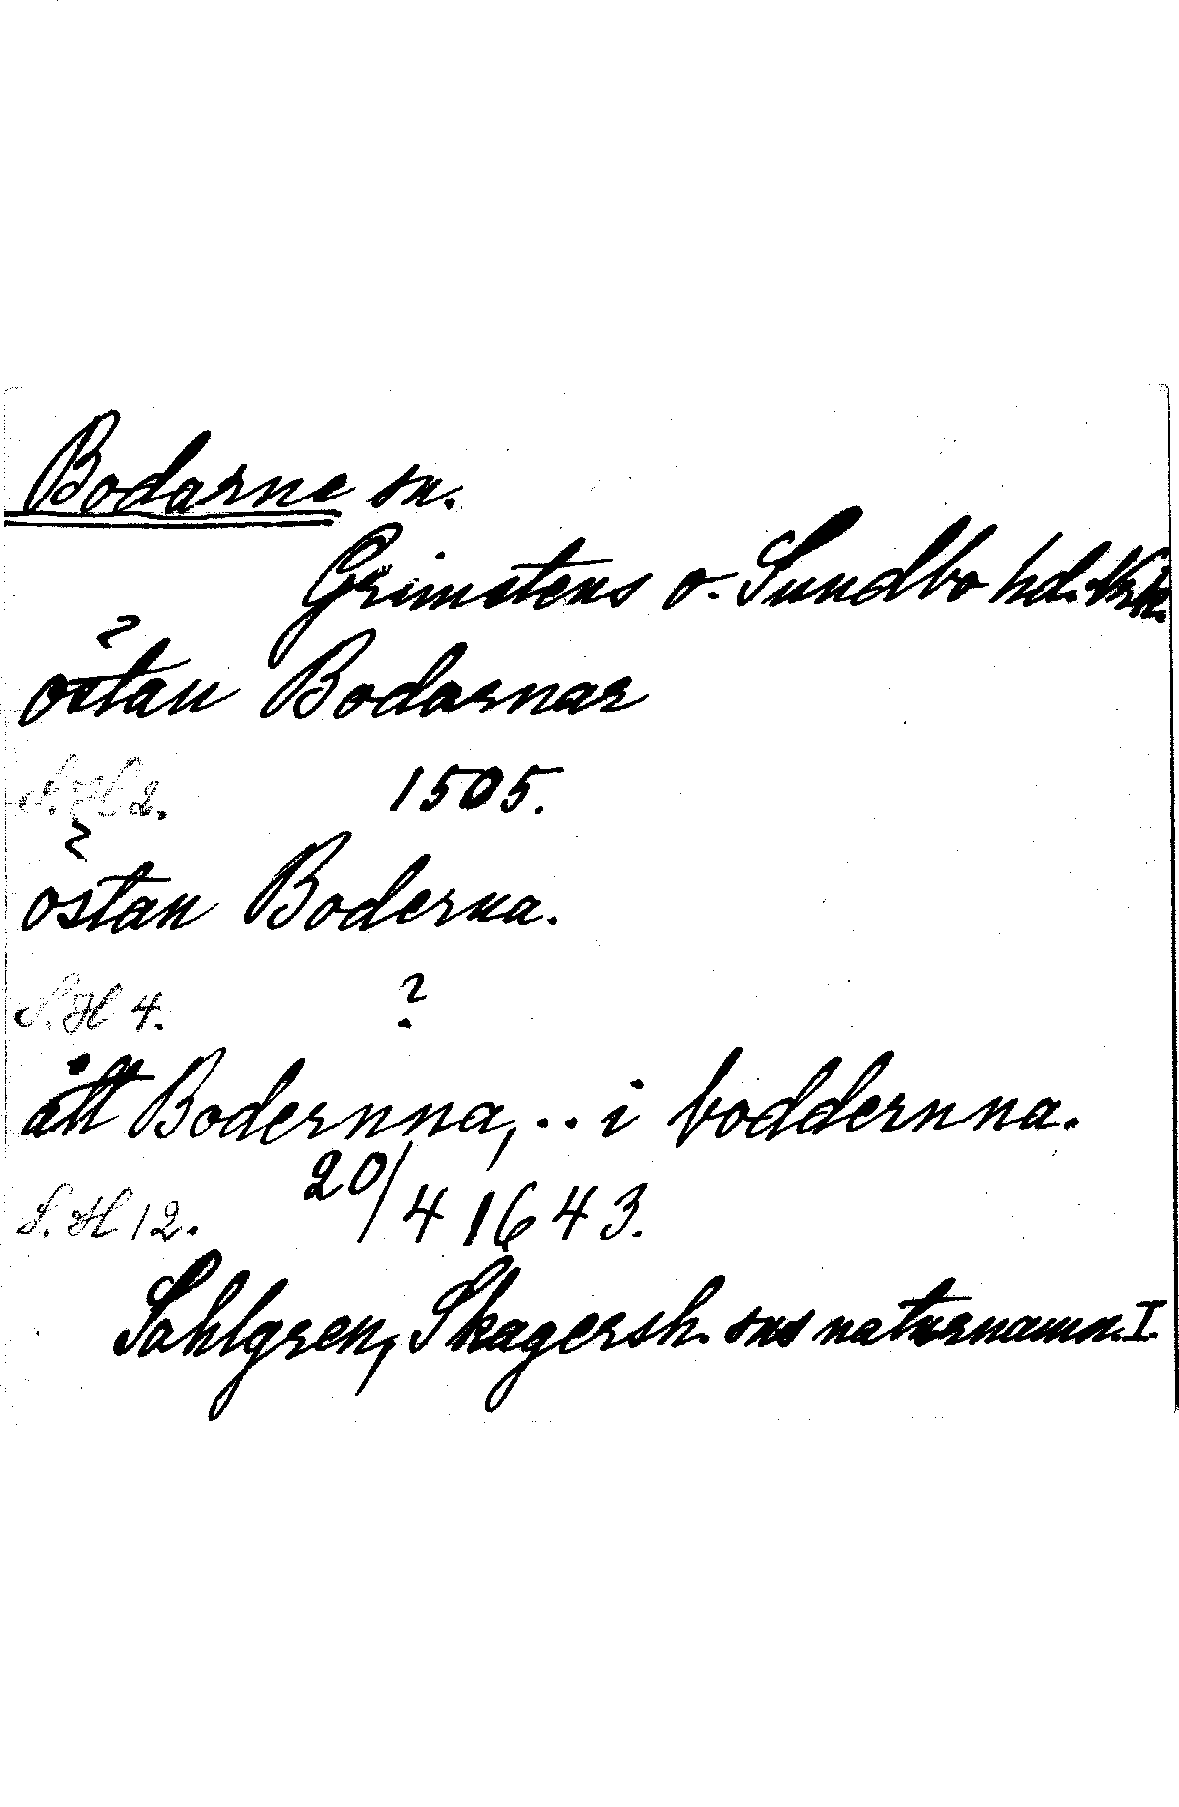 Bodarne sn.
Grimstens o. Sundbo hd. Nrk.
östan Bodarnar
S.H 2. 1505.
östan Boderna.
S.H 4. ?
ått Bodernna, .. i boddernna.
S.H 12. 20/4 1643.
Sahlgren, Skagersh. sns naturnamn. I